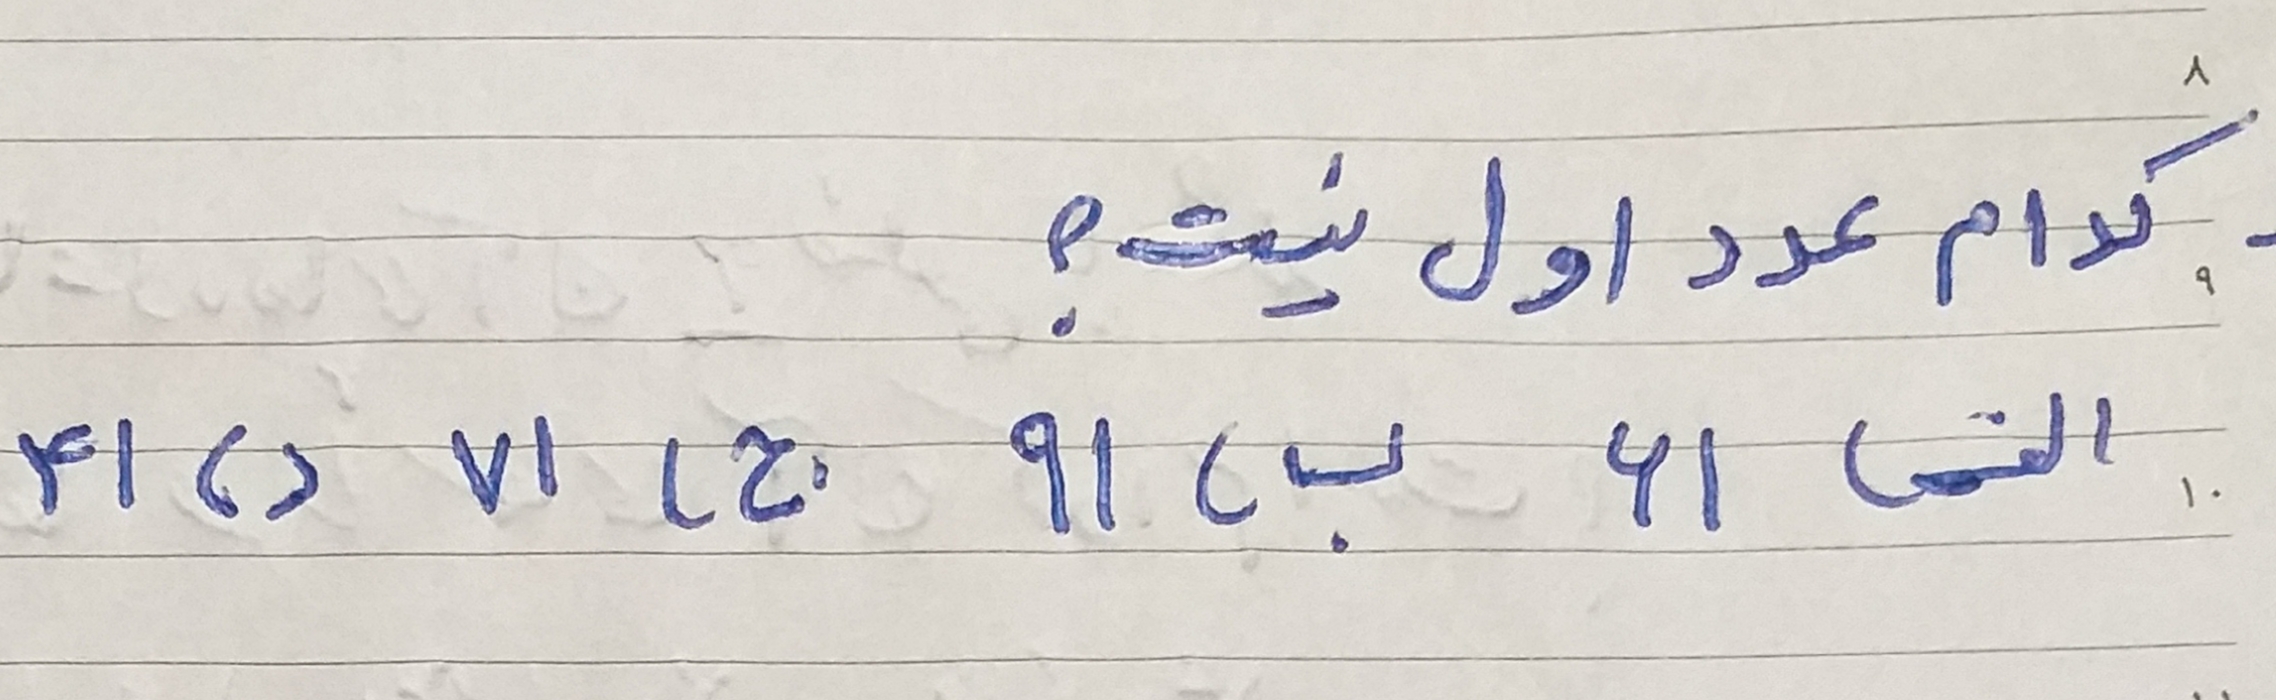 ۸
- کدام عدد اول نیست؟
۹
الف) ۶۱ ب) ۹۱ ج) ۷۱ د) ۴۱
۱۰